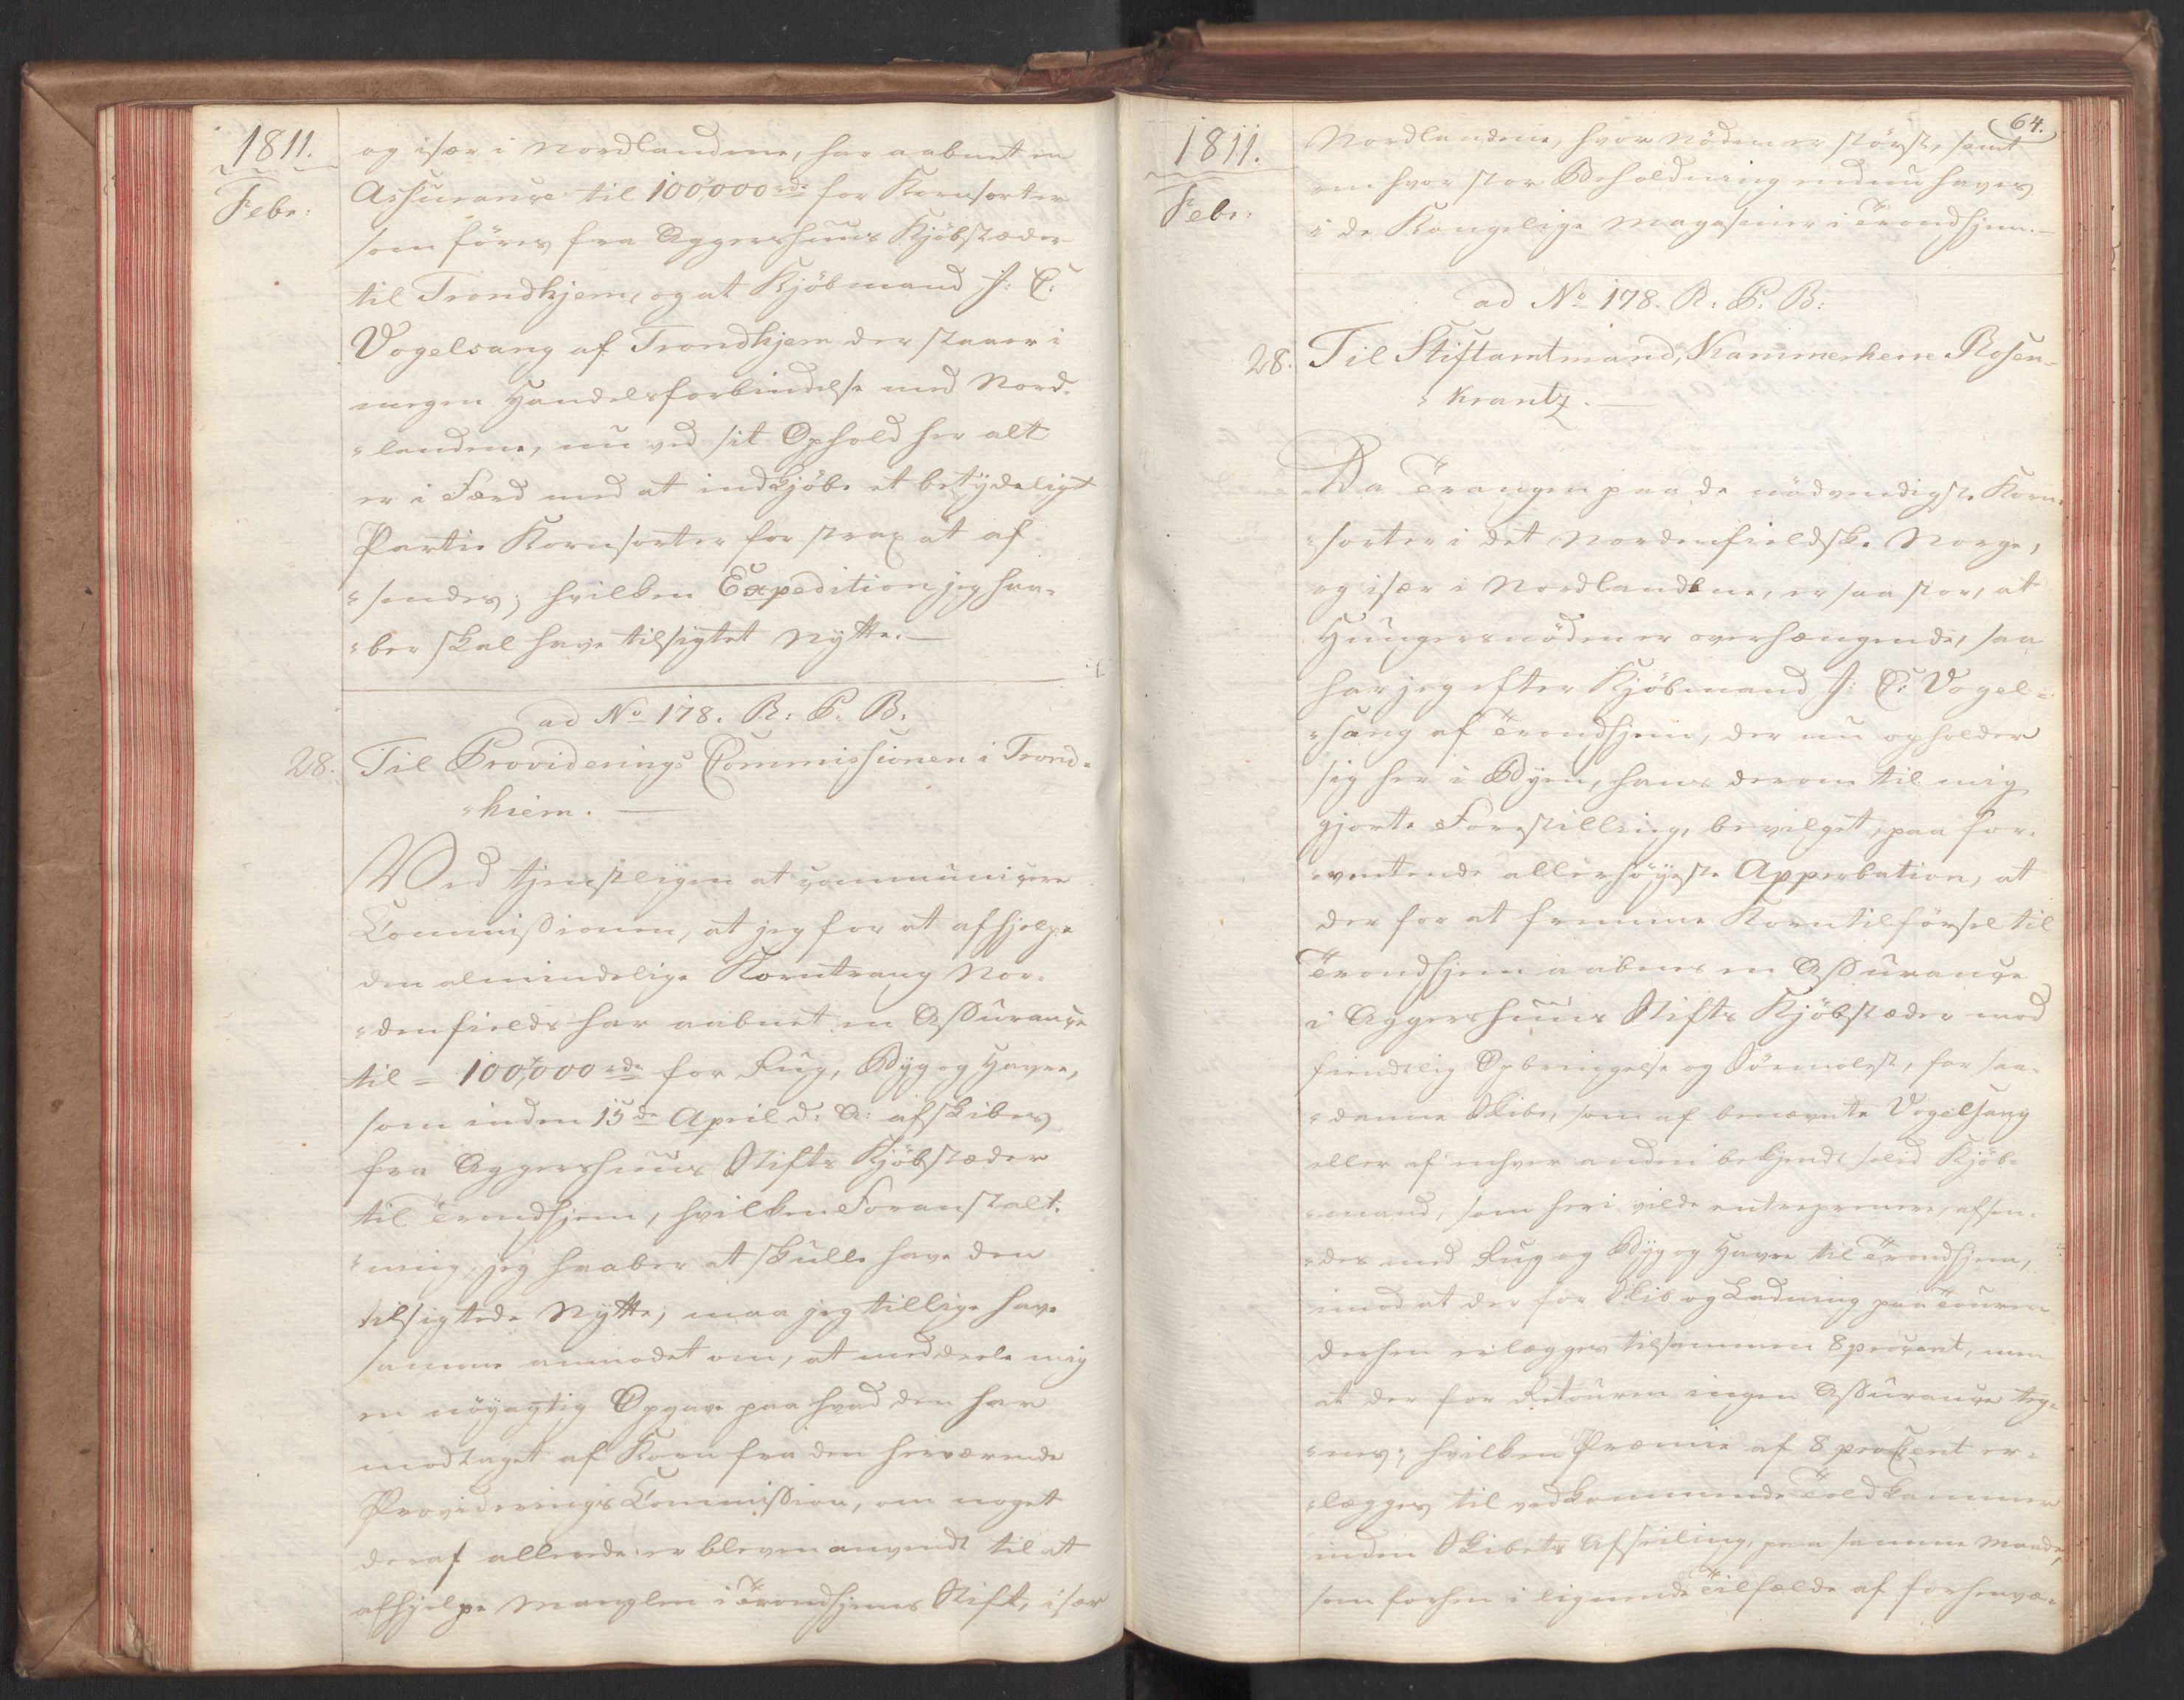 1811.
Febr:
og især i Nordlandene, har aabnet en
Assurance til 100,000 rd. for Kornsorter
som föres fra Aggershuus Kjöbstæder
til Trondhjem, og at Kjöbmand J: C:
Vogelsang af Trondhjem der staaer i
megen Handelsforbindelse med Nord-
"landene, nu ved sit Ophold her alt
er i Færd med at indkjöbe et betydeligt
Partie Kornsorter for strax at af-
"sendes; hvilken Expedition jeg haa-
"ber skal have tilsigtet Nytte.—
ad No 178. R: P: B.
28. Til Providerings Commissionen i Trond-
"hiem.—
Ved tjenstligen at communicere
Commissionen, at jeg for at afhjelpe
den almindelige Korntrang Nor-
"denfields har aabnet en Assurance
til = 100,000 rd. for Rug, Byg og Havre,
som inden 15de April d: A: afskibes
fra Aggershuus Stifts Kjöbstæder
til Trondhjem, hvilken Foranstalt-
"ning jeg haaber at skulle have den
tilsigtede Nytte; maa jeg tillige have
samme anmodet om, at meddeele mig
en nöyagtig Opgave paa hvad den har
modtaget af Korn fra den herværende
Providerings Commission, om noget
deraf allerede er bleven anvendt til at
afhjelpe Manglen i Trondhjems Stift, især
64.
1811.
Febr:
Nordlandene, hvor Nöden er störst, samt
om hvor stor Beholdning endnu haves
i de Kongelige Magasiner i Trondhjem.—
ad No 178. R: P: B:
28. Til Stiftamtmand, Kammerherre Rosen-
"krantz.—
Da Trangen paa de nödvendigste Korn-
"sorter i det Nordenfieldske Norge,
og især i Nordlandene, er saa stor, at
Hungersnöden er overhængende, saa
har jeg efter Kjöbmand J: C: Vogel-
"sang af Trondhjem, der nu opholder
sig her i Byen, hans derom til mig
gjorte Forestilling, bevilget, paa for-
"ventende allerhöyeste Approbation, at
der for at fremme Korntilförsel til
Trondhjem aabnes en Assurance
i Aggershuus Stifts Kjöbstæder mod
fiendtlig Opbringelse og Sörmolest, for saa-
"danne Skibe, som af benævnte Vogelsang
eller af enhver anden bekjendt solid Kjöb-
"mand, som heri vilde entreprenere, afsen-
"des med Rug og Byg og Havre til Trondhjem,
imod at der for Skib og Ladning paa Touren
derhen erlægges tilsammen 8 procent, men
at der for Retouren ingen Assurance teg-
"nes; hvilken Præmie af 8 proCent er-
"lægges til vedkommende Toldkammer
inden Skibets Afseiling, paa samme Maade,
som forhen i lignende Tilfælde af forhenvæ-